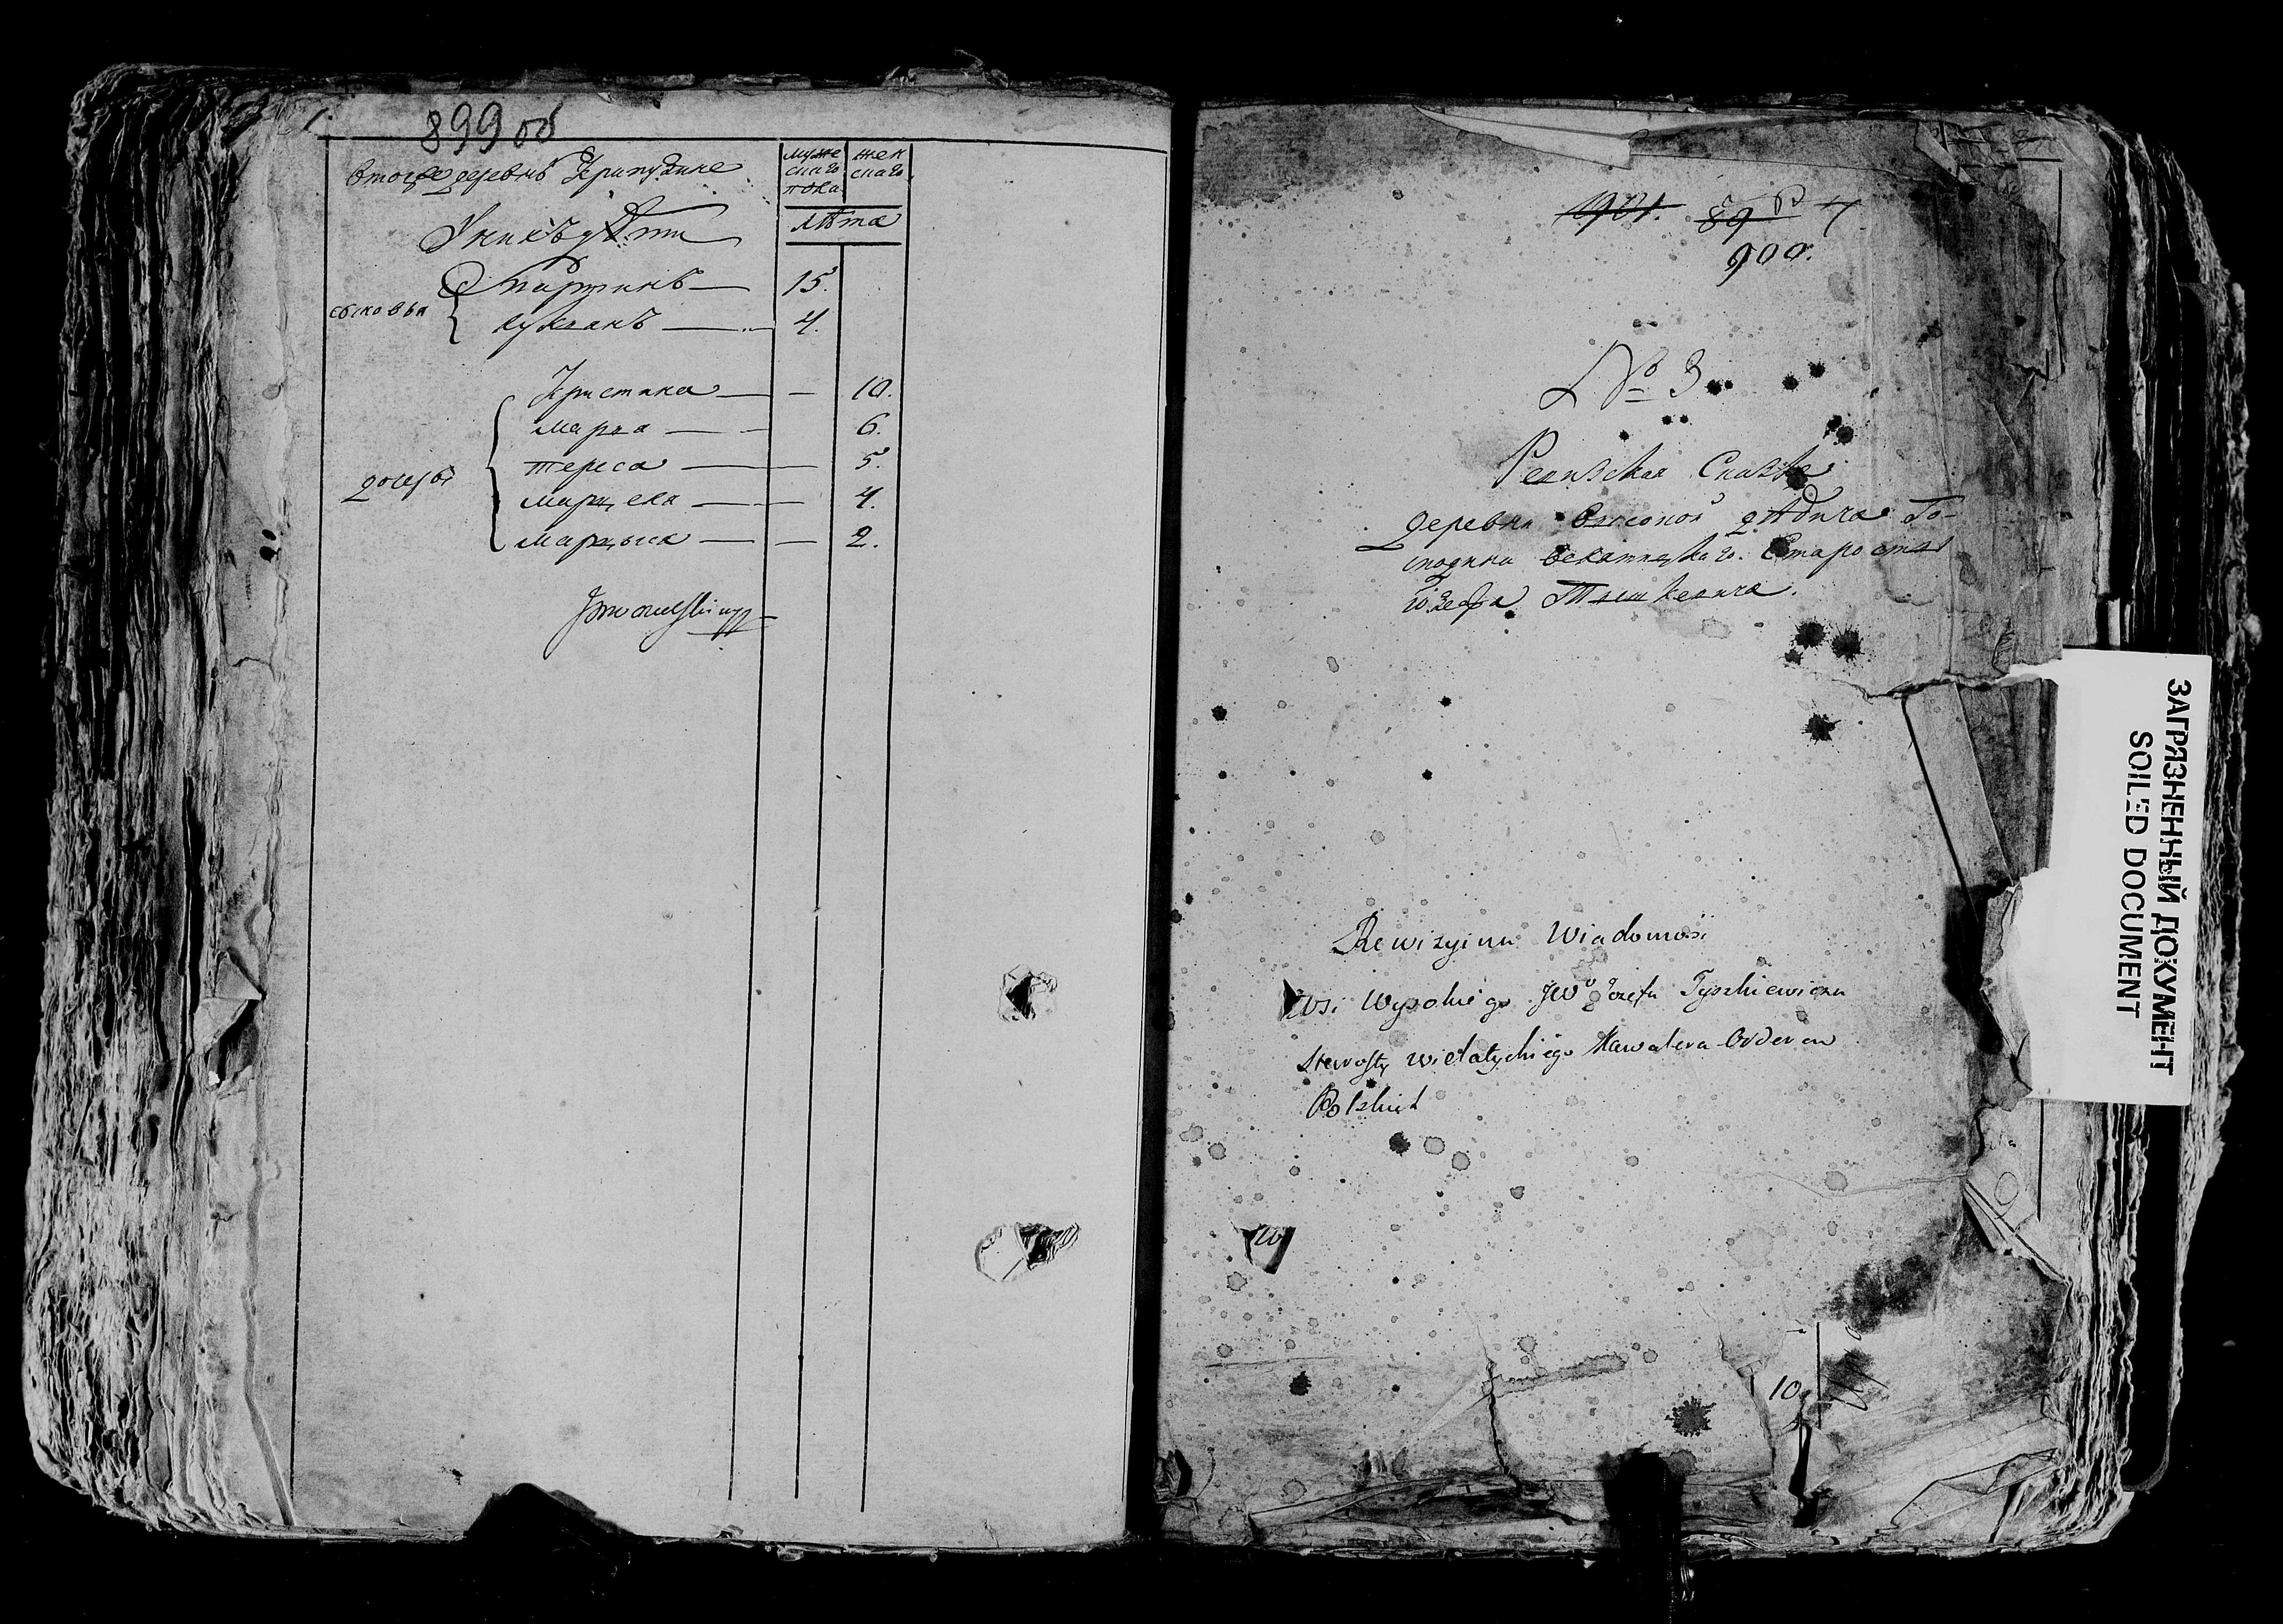 899 об
В той же деревнѣ Крипулине
муже
скаго
пола
жен
скаго
лѣта
У нихъ дѣти
сыновья
Мартинъ — 15.
Кужланъ — 4.
дочери
Кристина — — 10.
Марта — — 6.
Тереса — — 5.
Марцеха — — 4.
Марцыха — — 2.
1901. 89
900.
№ 3
Ревизская Сказка
деревни Высокой дѣдича Го-
сподина Велятицкаго Старосты
Юзефа Тышкевича.
Rewizyina Wiadomość
Wsi Wysokiego JWo Jozefa Tyszkiewicza
Starosty wielatyckiego Kawalera Orderow
Polskich
10
ЗАГРЯЗНЕННЫЙ ДОКУМЕНТ
SOILED DOCUMENT